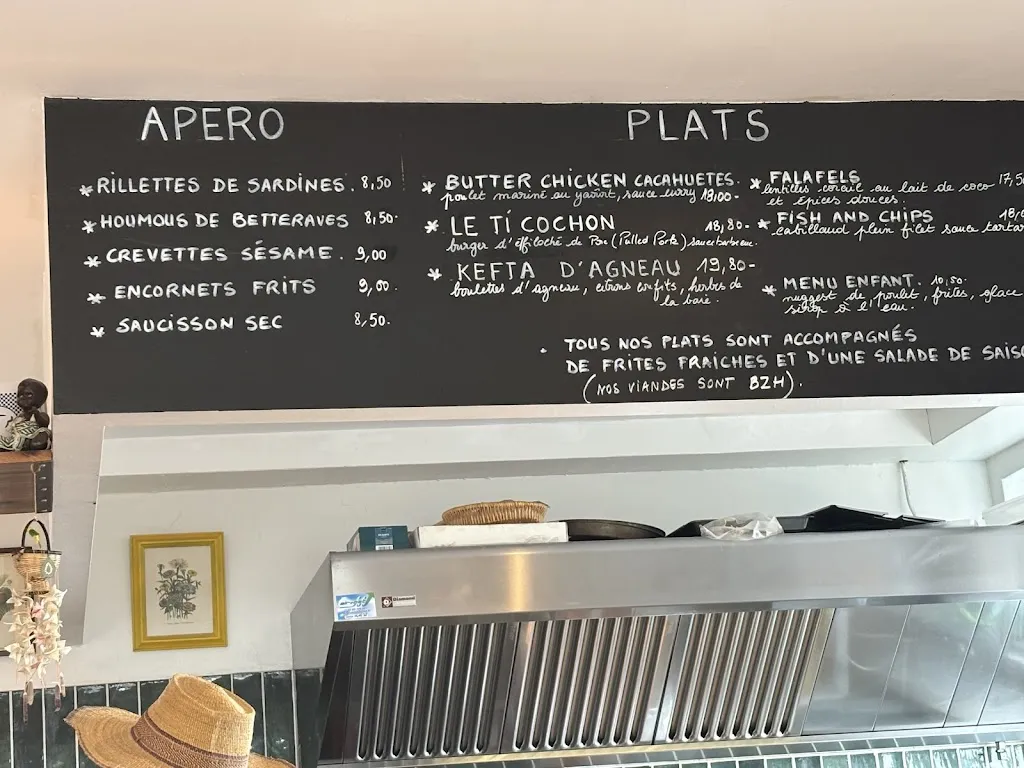 APERO
* RILLETTES DE SARDINES. 8,50
* HOUMOUS DE BETTERAVES 8,50-
* CREVETTES SÉSAME. 9,00
* ENCORNETS FRITS 9,00.
* SAUCISSON SEC 8,50.
PLATS
* BUTTER CHICKEN CACAHUETES.
poulet mariné au yaourt, sauce curry 18,00-
* LE TI COCHON 18,80-
burger d'effiloché de Porc (Pulled Pork) sauce barbecue.
* KEFTA D'AGNEAU 19,80-
boulettes d'agneau, citrons confits, herbes de
la baie.
* FALAFELS 17,50
lentilles corail au lait de coco
et épices douces.
* FISH AND CHIPS
cabillaud plein filet sauce tartar
* MENU ENFANT. 10,50.
nugget de poulet, frites, glace
sirop à l'eau.
. TOUS NOS PLATS SONT ACCOMPAGNÉS
DE FRITES FRAICHES ET D'UNE SALADE DE SAISO
(NOS VIANDES SONT BZH).
Diamond